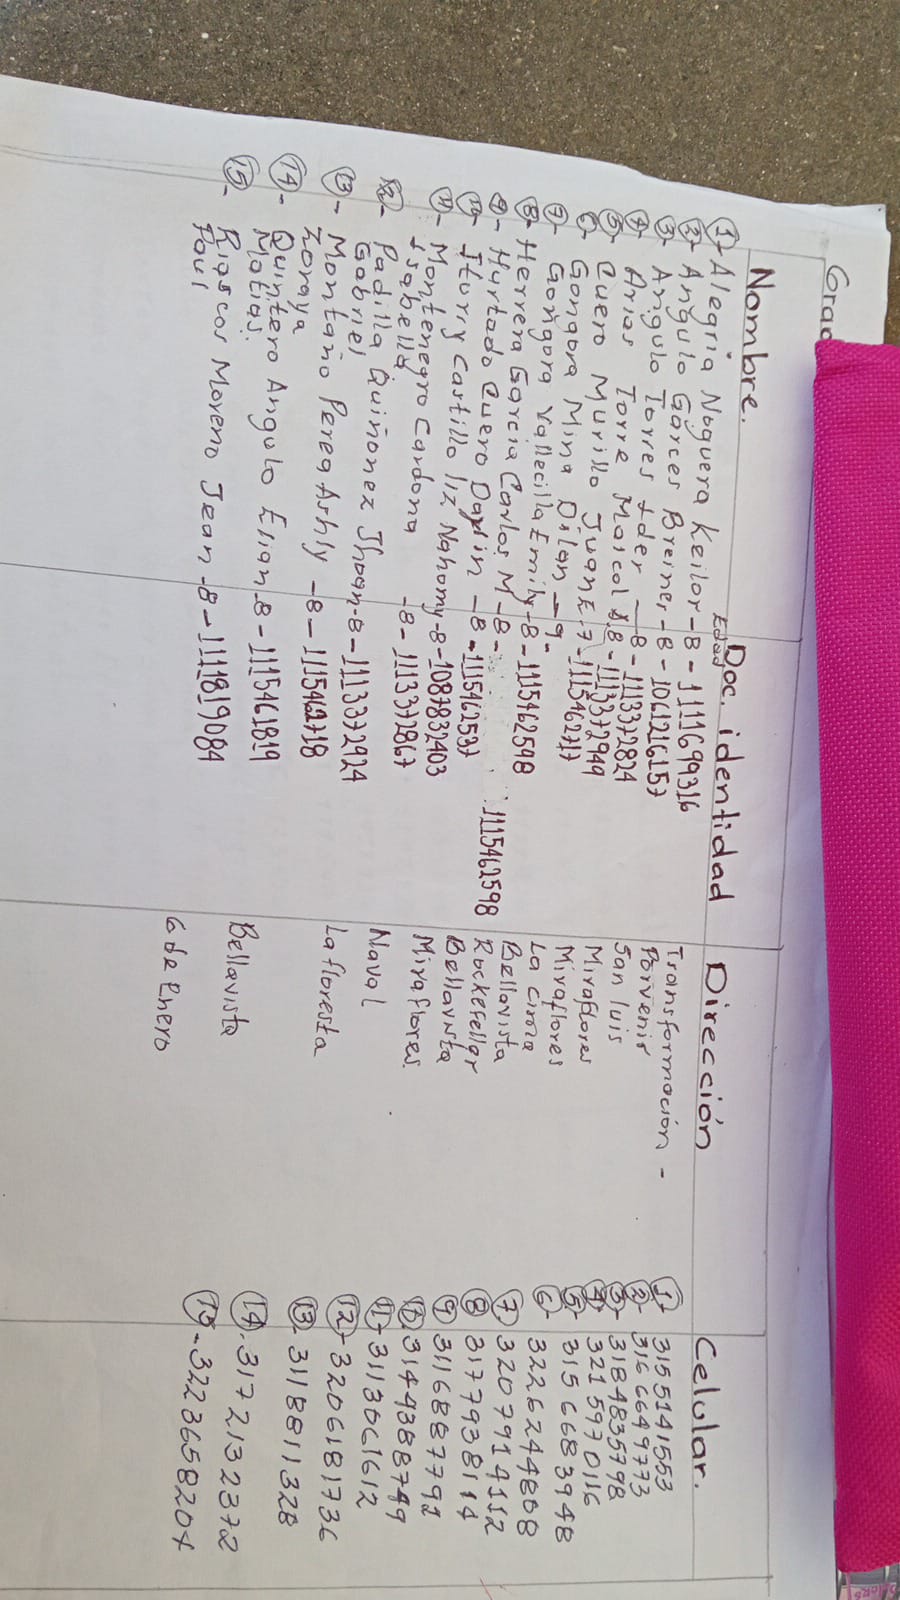 Grad
Nombre. Doc. identidad Dirección Celular.
Edad
1- Alegria Noguera Keilor - 8 - 1111699316 Transformación - 1- 3155141553
2- Angulo Garces Breiner - 8 - 1061216157 Porvenir 2- 316 6649773
3- Angulo Torres Ider - 8 - 1113372824 San luis 3- 3184835798
4- Arias Torre Maicol S. 8 - 1113372949 Miraflores 4- 321 5970116
5- Cuero Murillo Juan E - 7 - 1115462717 Miraflores 5- 315 6683948
6- Gongora Mina Dilan - 9 - La cima 6- 3226244808
7- Gongora Vallecilla Emily - 8 - 1115462598 Bellavista 7. 3207914112
8- Herrera Garcia Carlos M - 8 - 1115462598 Rockefeller 8 3177938114
9- Hurtado Cuero Daylin - 8 - 1115462537 Bellavista 9 3116887792
10- Iturry Castillo liz Nahomy - 8 - 1087832403 Miraflores. 10. 3144388749
11- Montenegro Cardona - 8 - 1113372867 Naval 11- 3113061612
Isabella.
12- Padilla Quiñonez Jhoan - 8 - 1113372924 La floresta 12- 3206181736
Gabriel
13- Montaño Perea Ashly - 8 - 1115462718 13. 3118811328
Zoraya
14- Quintero Angulo Elian - 8 - 1115461819 Bellavista 14. 3172132372
Matias.
15- Riascos Moreno Jean - 8 - 1111819084 6 de Enero 15 - 3223658204
Paul